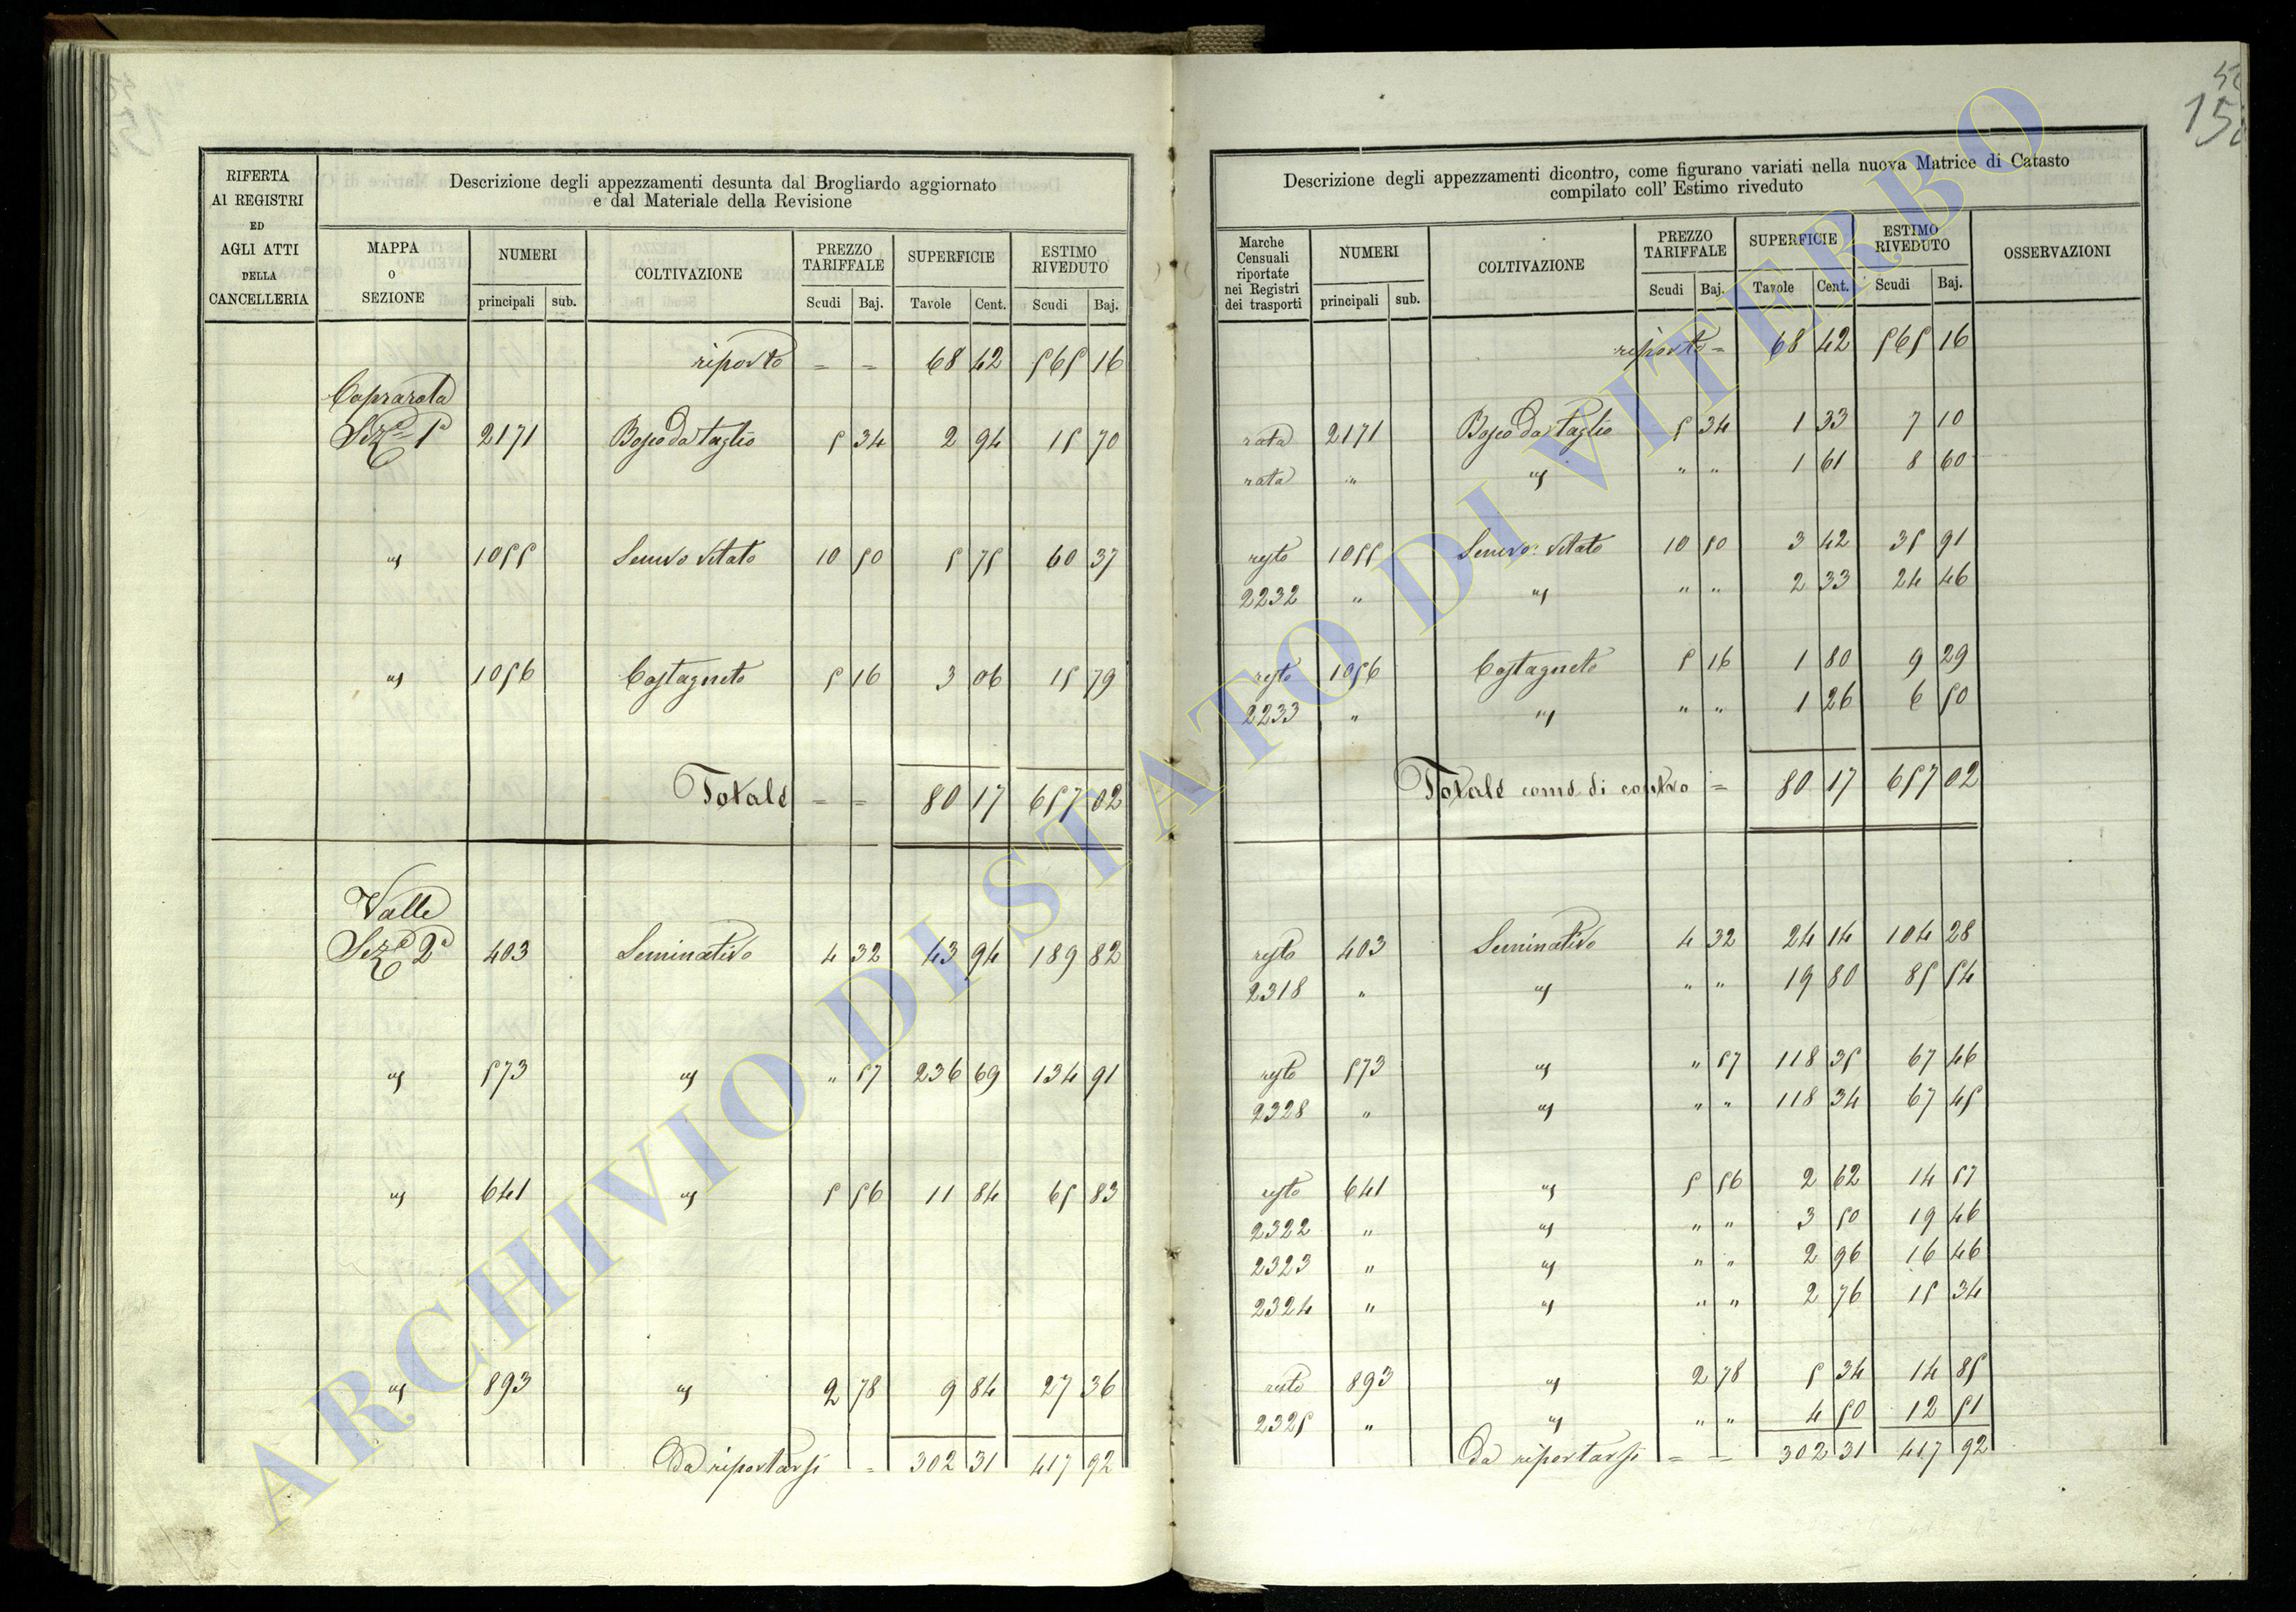 RIFERTA
AI REGISTRI
ED
AGLI ATTI
DELLA
CANCELLERIA
Descrizione degli appezzamenti desunta dal Brogliardo aggiornato
e dal Materiale della Revisione
MAPPA
o
SEZIONE
NUMERI
principali sub.
COLTIVAZIONE
PREZZO
TARIFFALE
Scudi Baj.
SUPERFICIE
Tavole Cent.
ESTIMO
RIVEDUTO
Scudi Baj.
riporto = = 68 42 565 16
Caprarola
Sez.e 1a 2171 Bosco da taglio 5 34 2 94 15 70
" 1055 Semivo Vitato 10 50 5 75 60 37
" 1056 Castagneto 5 16 3 06 15 79
Totale = = 80 17 657 02
Valle
Seze 2a 403 Seminativo 4 32 43 94 189 82
" 573 " " 57 236 69 134 91
" 641 " 5 56 11 84 65 83
" 893 " 2 78 9 84 27 36
Da riportarsi = 302 31 417 92
Descrizione degli appezzamenti dicontro, come figurano variati nella nuova Matrice di Catasto
compilato coll' Estimo riveduto
Marche
Censuali
riportate
nei Registri
dei trasporti
NUMERI
principali sub.
COLTIVAZIONE
PREZZO
TARIFFALE
Scudi Baj.
SUPERFICIE
Tavole Cent.
ESTIMO
RIVEDUTO
Scudi Baj.
OSSERVAZIONI
riporto = 68 42 565 16
rata 2171 Bosco da taglio 5 34 1 33 7 10
rata " " " " 1 61 8 60
resto 1055 Semivo: Vitato 10 50 3 42 35 91
2232 " " " " 2 33 24 46
resto 1056 Castagneto 5 16 1 80 9 29
2233 " " " " 1 26 6 50
Totale come di contro = 80 17 657 02
resto 403 Seminativo 4 32 24 14 104 28
2318 " " " " 19 80 85 54
resto 573 " " 57 118 35 67 46
2328 " " " " 118 34 67 45
resto 641 " 5 56 2 62 14 57
2322 " " " " 3 50 19 46
2323 " " " " 2 96 16 46
2324 " " " " 2 76 15 34
resto 893 " 2 78 5 34 14 85
2325 " " " " 4 50 12 51
Da riportarsi = = 302 31 417 92
ARCHIVIO DI STATO DI VITERBO